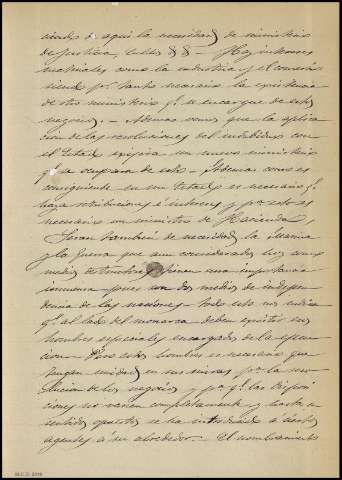 ciendo de aqui la necesidad de ministerio
de Justicia, cultos && - Hay intereses
materiales como la industria y el comercio
siendo p.r tanto necesaria la existencia
de otro ministerio q.e se encargue de estos
negocios. - Ademas vemos que la aplica
cion de las revoluciones del individuo con
el Estado exigiria un nuevo ministerio
q.e se ocupara de esto - Ademas como es
consiguiente en un Estado es necesario q.e
haya retribuciones é intereses y p.r esto es
necesario un ministro de Hacienda,
Seran tambien de necesidad la Marina
y la Guerra que aun considerados los
medios de tienen una importancia
inmensa pues son los medios de indepen
dencia de las naciones - todo esto nos indica
q.e al lado del monarca deben existir
hombres especiales encargados de la ejecu
cion - Para estos hombres es necesario que
tengan unidad en sus miras p.a la reso
lucion de los negocios y p.a q.e las disposi
ciones no varien completamente y hasta en
sentido opuesto se ha introducido á ciertos
agentes á su alrededor. El nombramiento